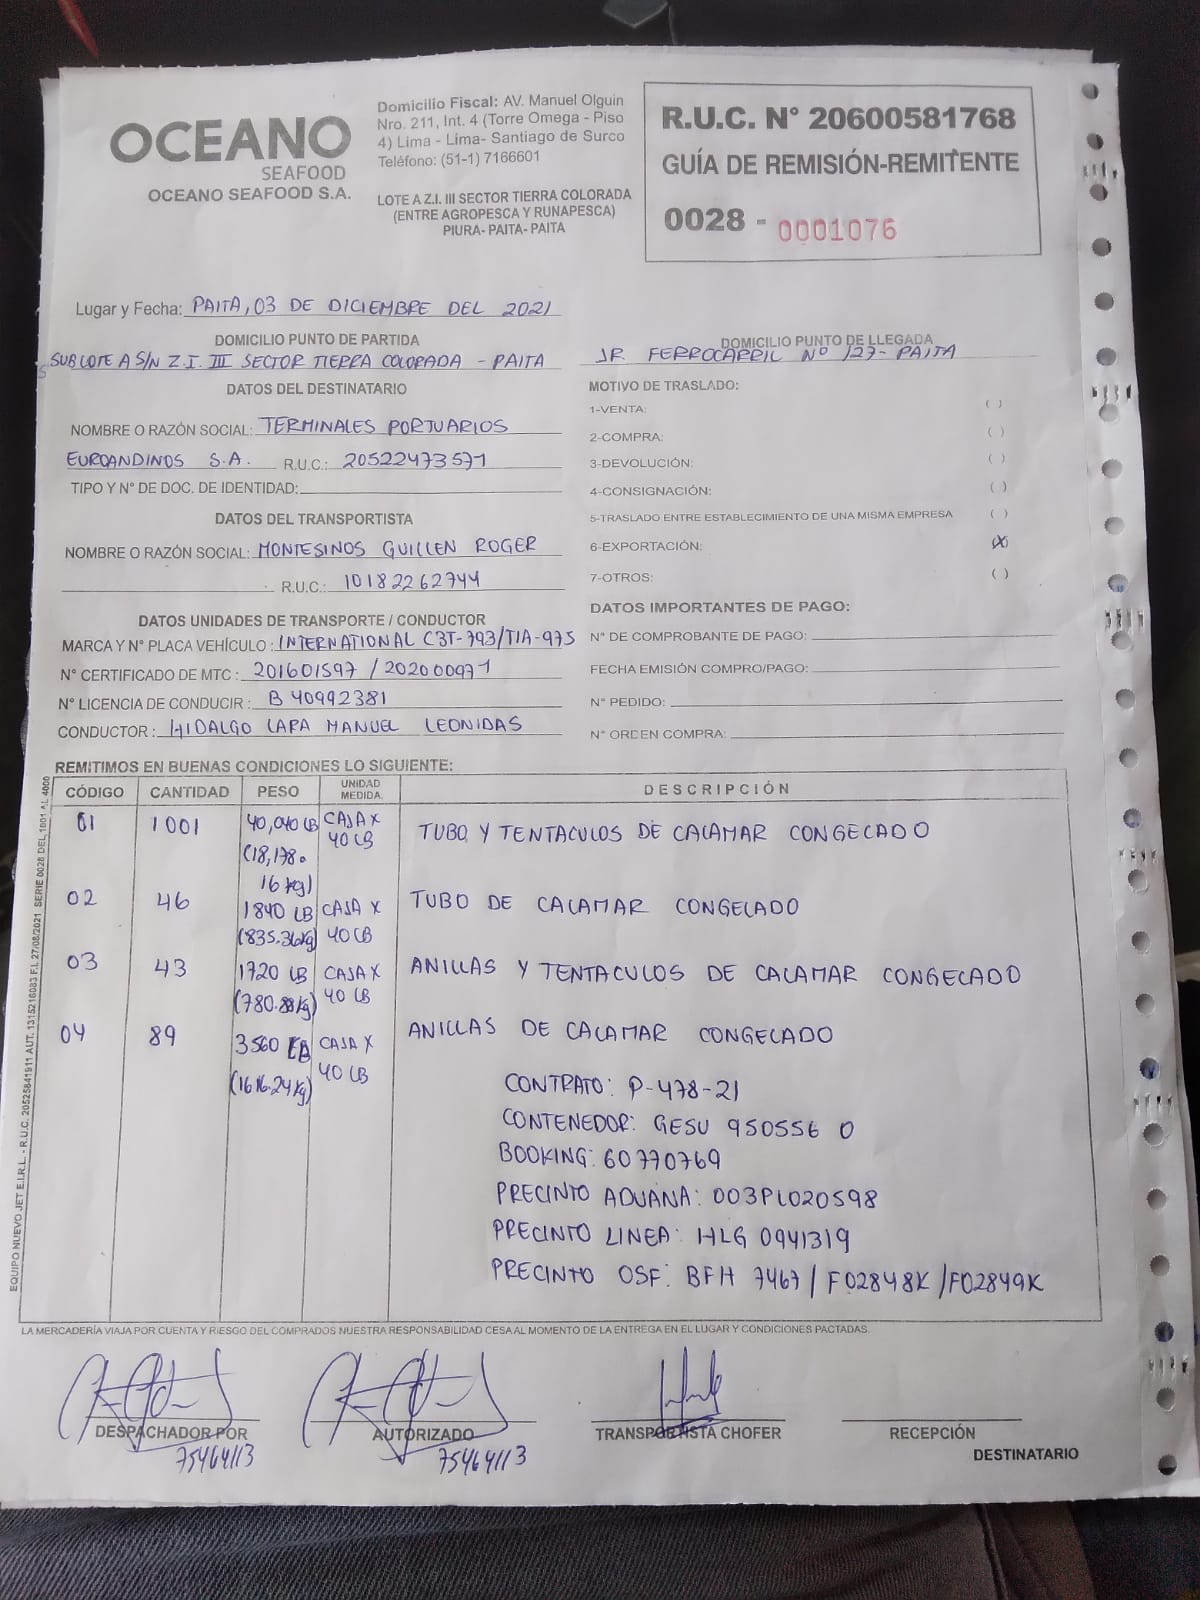 OCEANO
SEAFOOD
OCEANO SEAFOOD S.A.
Domicilio Fiscal: AV. Manuel Olguin
Nro. 211, Int. 4 (Torre Omega - Piso
4) Lima - Lima- Santiago de Surco
Teléfono: (51-1) 7166601
LOTE A Z.I. III SECTOR TIERRA COLORADA
(ENTRE AGROPESCA Y RUNAPESCA)
PIURA- PAITA- PAITA
R.U.C. N° 20600581768
GUÍA DE REMISIÓN-REMITENTE
0028 - 0001076
Lugar y Fecha: PAITA, 03 DE DICIEMBRE DEL 2021
DOMICILIO PUNTO DE PARTIDA
SUB LOTE A S/N Z.I. III SECTOR TIERRA COLORADA - PAITA
DOMICILIO PUNTO DE LLEGADA
JR. FERROCARRIL Nº 127- PAITA
DATOS DEL DESTINATARIO
NOMBRE O RAZÓN SOCIAL: TERMINALES PORTUARIOS
EUROANDINOS S.A. R.U.C.: 20522473571
TIPO Y N° DE DOC. DE IDENTIDAD:
DATOS DEL TRANSPORTISTA
NOMBRE O RAZÓN SOCIAL: MONTESINOS GUILLEN ROGER
R.U.C.: 10182262744
DATOS UNIDADES DE TRANSPORTE / CONDUCTOR
MARCA Y N° PLACA VEHÍCULO: INTERNATIONAL C3T-793/TIA-975
N° CERTIFICADO DE MTC: 201601597 / 202000971
N° LICENCIA DE CONDUCIR: B 40992381
CONDUCTOR: HIDALGO LAPA MANUEL LEONIDAS
MOTIVO DE TRASLADO:
1-VENTA: ( )
2-COMPRA: ( )
3-DEVOLUCIÓN: ( )
4-CONSIGNACIÓN: ( )
5-TRASLADO ENTRE ESTABLECIMIENTO DE UNA MISMA EMPRESA ( )
6-EXPORTACIÓN: (X)
7-OTROS: ( )
DATOS IMPORTANTES DE PAGO:
N° DE COMPROBANTE DE PAGO:
FECHA EMISIÓN COMPRO/PAGO:
N° PEDIDO:
N° ORDEN COMPRA:
REMITIMOS EN BUENAS CONDICIONES LO SIGUIENTE:
CÓDIGO CANTIDAD PESO UNIDAD MEDIDA. DESCRIPCIÓN
01 1001 40,040 LB CAJA X TUBO Y TENTACULOS DE CALAMAR CONGELADO
(18,178. 40 LB
16 kg)
02 46 1840 LB CAJA X TUBO DE CALAMAR CONGELADO
(835.36kg) 40 LB
03 43 1720 LB CAJA X ANILLAS Y TENTACULOS DE CALAMAR CONGELADO
(780.88kg) 40 LB
04 89 3560 LB CAJA X ANILLAS DE CALAMAR CONGELADO
(1616.24kg) 40 LB
CONTRATO: P-478-21
CONTENEDOR: GESU 950556 0
BOOKING: 60770769
PRECINTO ADUANA: 003PL020598
PRECINTO LINEA: HLG 0941319
PRECINTO OSF: BFH 7467 / F02848K /F02849K
EQUIPO NUEVO JET E.I.R.L. - R.U.C. 20525841911 AUT. 1315216083 F.I. 27/08/2021 SERIE 0028 DEL 1001 AL 4000
LA MERCADERÍA VIAJA POR CUENTA Y RIESGO DEL COMPRADOS NUESTRA RESPONSABILIDAD CESA AL MOMENTO DE LA ENTREGA EN EL LUGAR Y CONDICIONES PACTADAS.
DESPACHADOR POR AUTORIZADO TRANSPORTISTA CHOFER RECEPCIÓN
75464113 75464113 DESTINATARIO